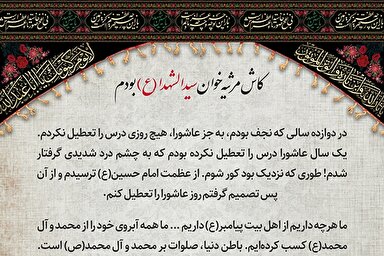 کاش مرثیه‌خوان سیدالشهدا (ع) بودم
در دوازده سالی که نجف بودم، به جز عاشورا، هیچ روزی درس را تعطیل نکردم.
یک سال عاشورا درس را تعطیل نکرده بودم که به چشم درد شدیدی گرفتار
شدم! طوری که نزدیک بود کور شوم. از عظمت امام حسین(ع) ترسیدم و از آن
پس تصمیم گرفتم روز عاشورا را تعطیل کنم.
ما هر چه داریم از اهل بیت پیامبر(ع) داریم ... ما همه آبروی خود را از محمد و آل
محمد(ع) کسب کرده‌ایم. باطن دنیا، صلوات بر محمد و آل محمد(ص) است.